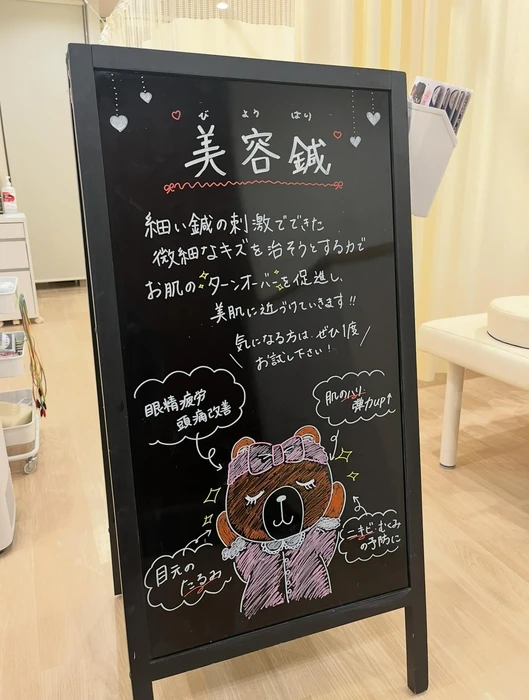 びようはり
美容鍼
細い鍼の刺激でできた
微細なキズを治そうとする力で
お肌のターンオーバーを促進し、
美肌に近づけていきます!!
気になる方は、ぜひ1度
お試し下さい!
眼精疲労
頭痛改善
肌のハリ
弾力up↑
目元の
たるみ
ニキビ・むくみ
の予防に